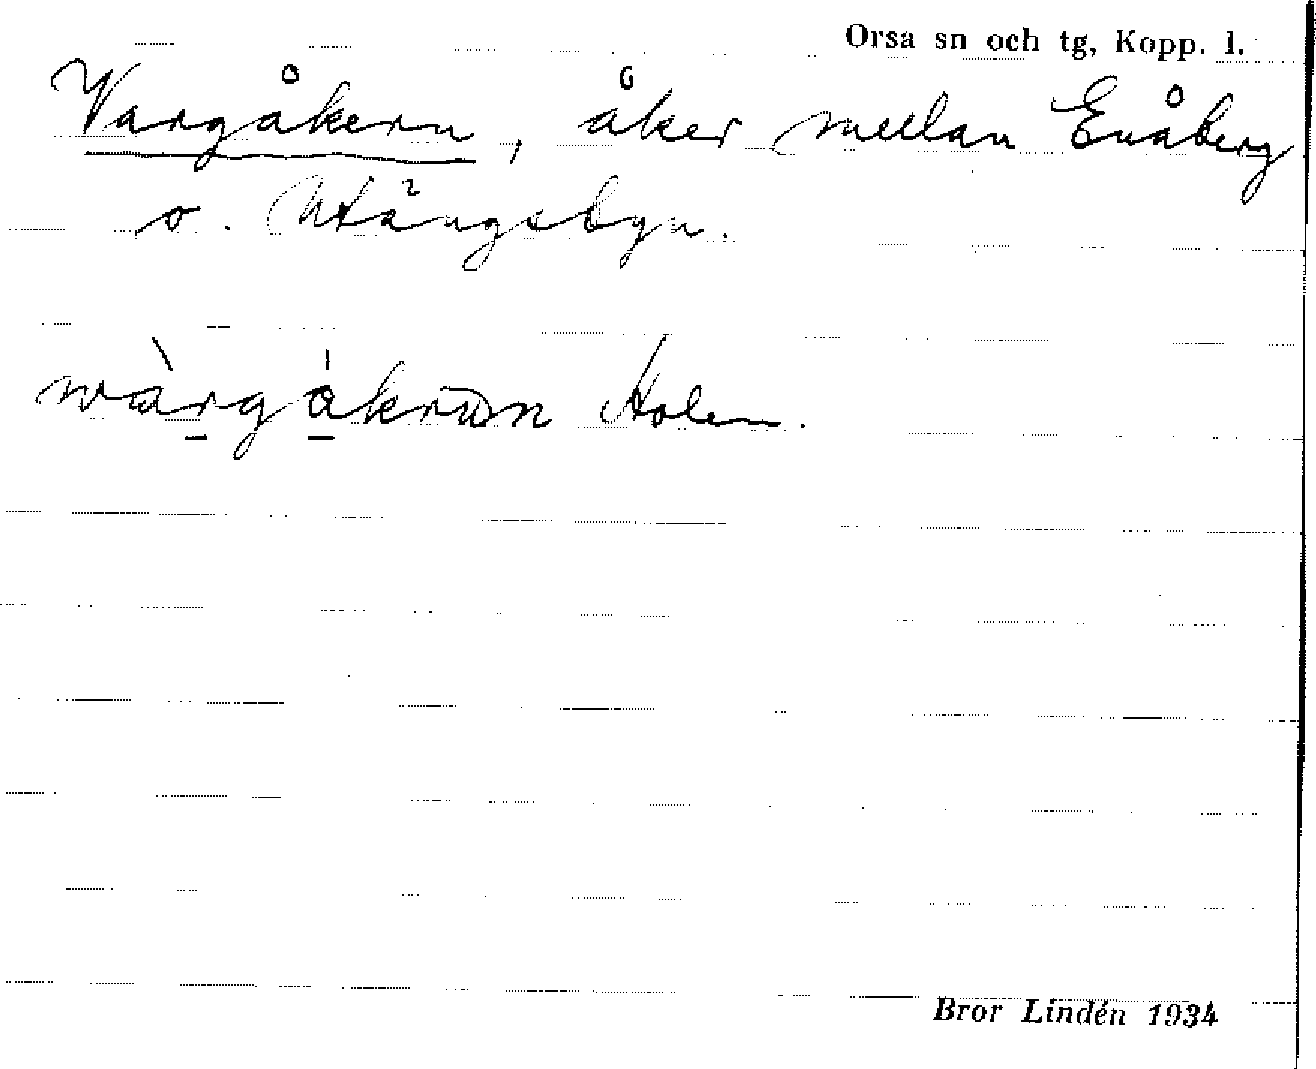 Orsa sn och tg, Kopp. l.
Vargåkern, åker mellan Enåberg
o. Utängsbyn.
wàrgåkrųn Holen.
Bror Lindén 1934